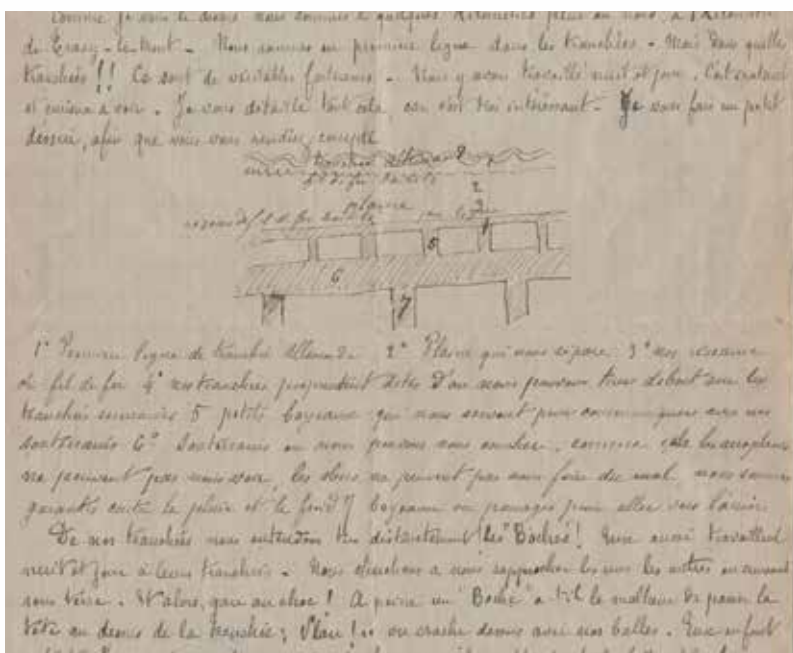 Comme je vous le disais nous sommes à quelques kilomètres plus au nord, à
de Tracy-le-Mont - Nous sommes en première ligne dans les tranchées - Mais dans quelles
tranchées !! Ce sont de véritables forteresses - Nous y avons travaillé nuit et jour. C'est
et curieux à voir. Je vous détaille tout cela, car c'est très intéressant - Je vous fais un petit
dessin, afin que vous vous rendiez compte
tranchée
fil de fer
2
plaine
3
réseau de fil de fer
4
5
6
7
7
1° Première ligne de tranchée allemande 2° Plaine qui nous sépare 3° nos réseaux
de fil de fer 4° nos tranchées proprement dites d'où nous pouvons tirer debout sur les
tranchées ennemies 5 petits boyaux qui nous servent pour communiquer avec nos
souterrains 6° Souterrains où nous pouvons nous coucher, comme cela les aéroplanes
ne peuvent pas nous voir, les obus ne peuvent pas nous faire du mal nous sommes
garantis contre la pluie et le froid 7 boyaux ou passages pour aller vers l'arrière
De nos tranchées nous entendons très distinctement les "Boches"! Eux aussi travaillent
nuit et jour à leurs tranchées - Nous cherchons à nous rapprocher les uns les autres en creusant
sous terre. Et alors, gare au choc ! A peine un "Boche" a t-il le malheur de passer la
tête au dessus de la tranchée; Vlan !.. on crache dessus avec nos balles. Eux en font